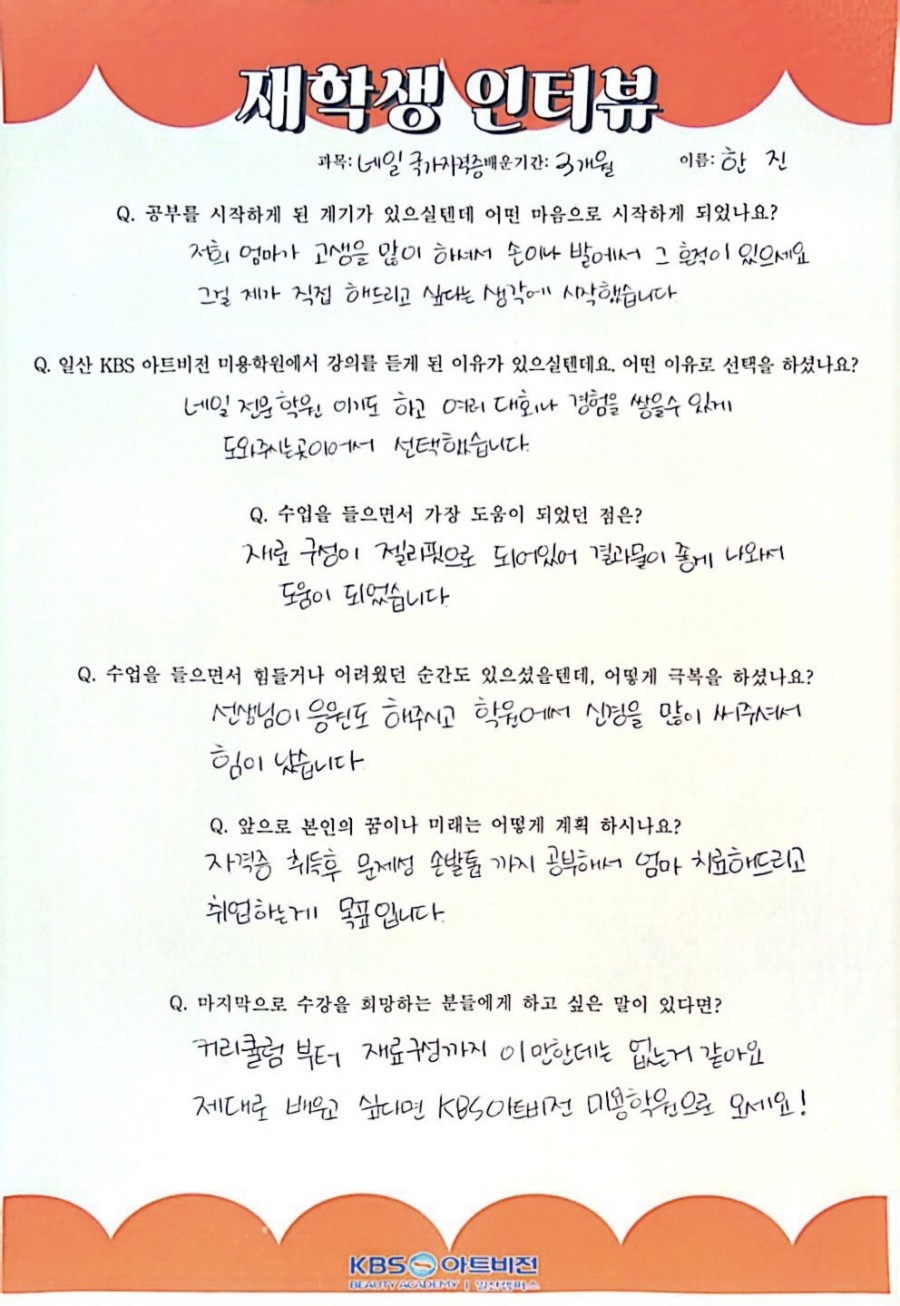 재학생 인터뷰
과목: 네일 국가자격증 배운기간: 3개월 이름: 한 진
Q. 공부를 시작하게 된 계기가 있으실텐데 어떤 마음으로 시작하게 되었나요?
저희 엄마가 고생을 많이 하셔서 손이나 발에서 그 흔적이 있으세요
그걸 제가 직접 해드리고 싶다는 생각에 시작했습니다.
Q. 일산 KBS 아트비전 미용학원에서 강의를 듣게 된 이유가 있으실텐데요. 어떤 이유로 선택을 하셨나요?
네일 전문 학원 이기도 하고 여러 대회나 경험을 쌓을수 있게
도와주시는곳이어서 선택했습니다.
Q. 수업을 들으면서 가장 도움이 되었던 점은?
재료 구성이 젤리핏으로 되어있어 결과물이 좋게 나와서
도움이 되었습니다.
Q. 수업을 들으면서 힘들거나 어려웠던 순간도 있으셨을텐데, 어떻게 극복을 하셨나요?
선생님이 응원도 해주시고 학원에서 신경을 많이 써주셔서
힘이 났습니다.
Q. 앞으로 본인의 꿈이나 미래는 어떻게 계획 하시나요?
자격증 취득후 문제성 손발톱 까지 공부해서 엄마 치료해드리고
취업하는게 목표입니다.
Q. 마지막으로 수강을 희망하는 분들에게 하고 싶은 말이 있다면?
커리큘럼 부터 재료구성까지 이만한데는 없는거 같아요
제대로 배우고 싶다면 KBS아트비전 미용학원으로 오세요!
KBS 아트비전
BEAUTY ACADEMY | 일산캠퍼스